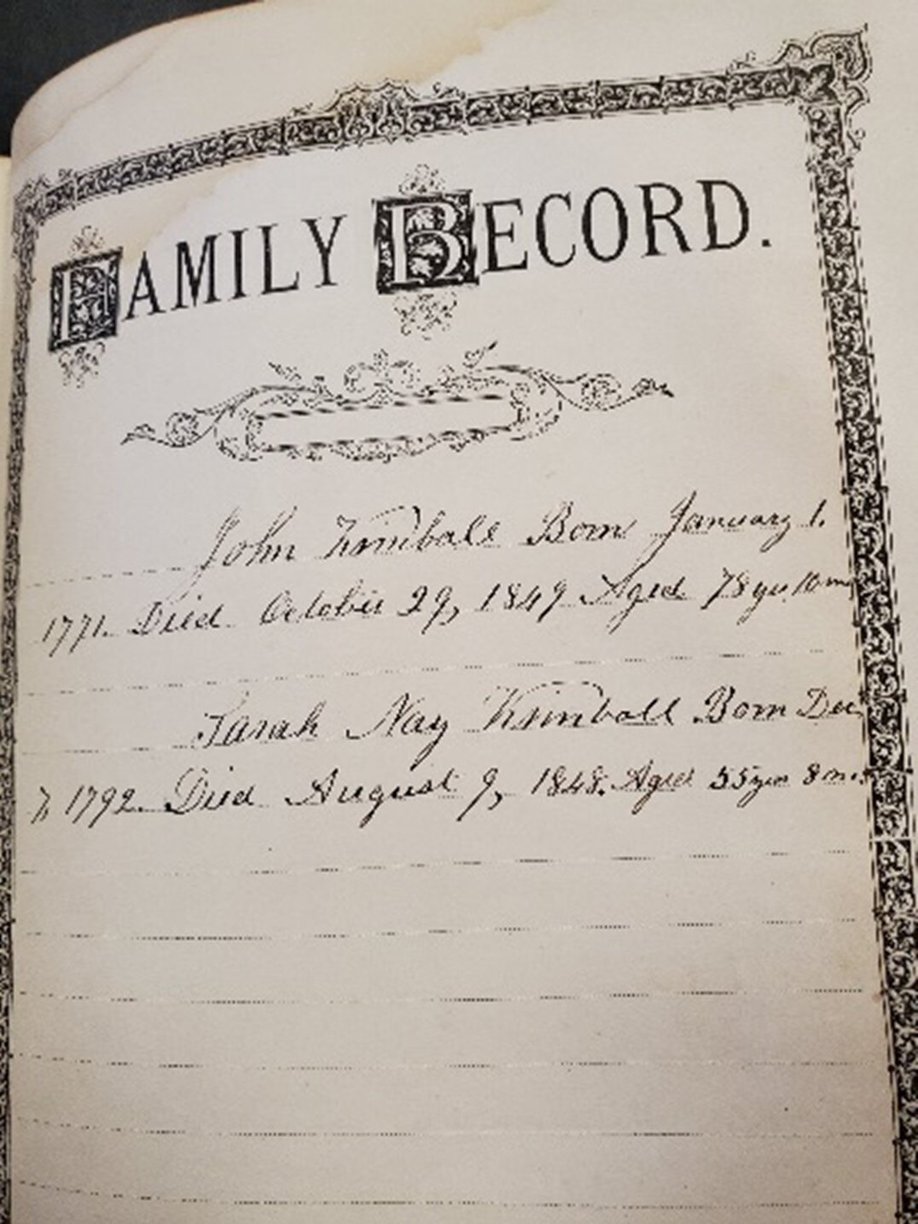 FAMILY RECORD.
John Kimball Born January 1.
1771. Died October 29, 1849 Aged 78 yrs. 10 m
Sarah Nay Kimball Born Dec
7, 1792. Died August 9, 1848. Aged 55 yrs 8 m.